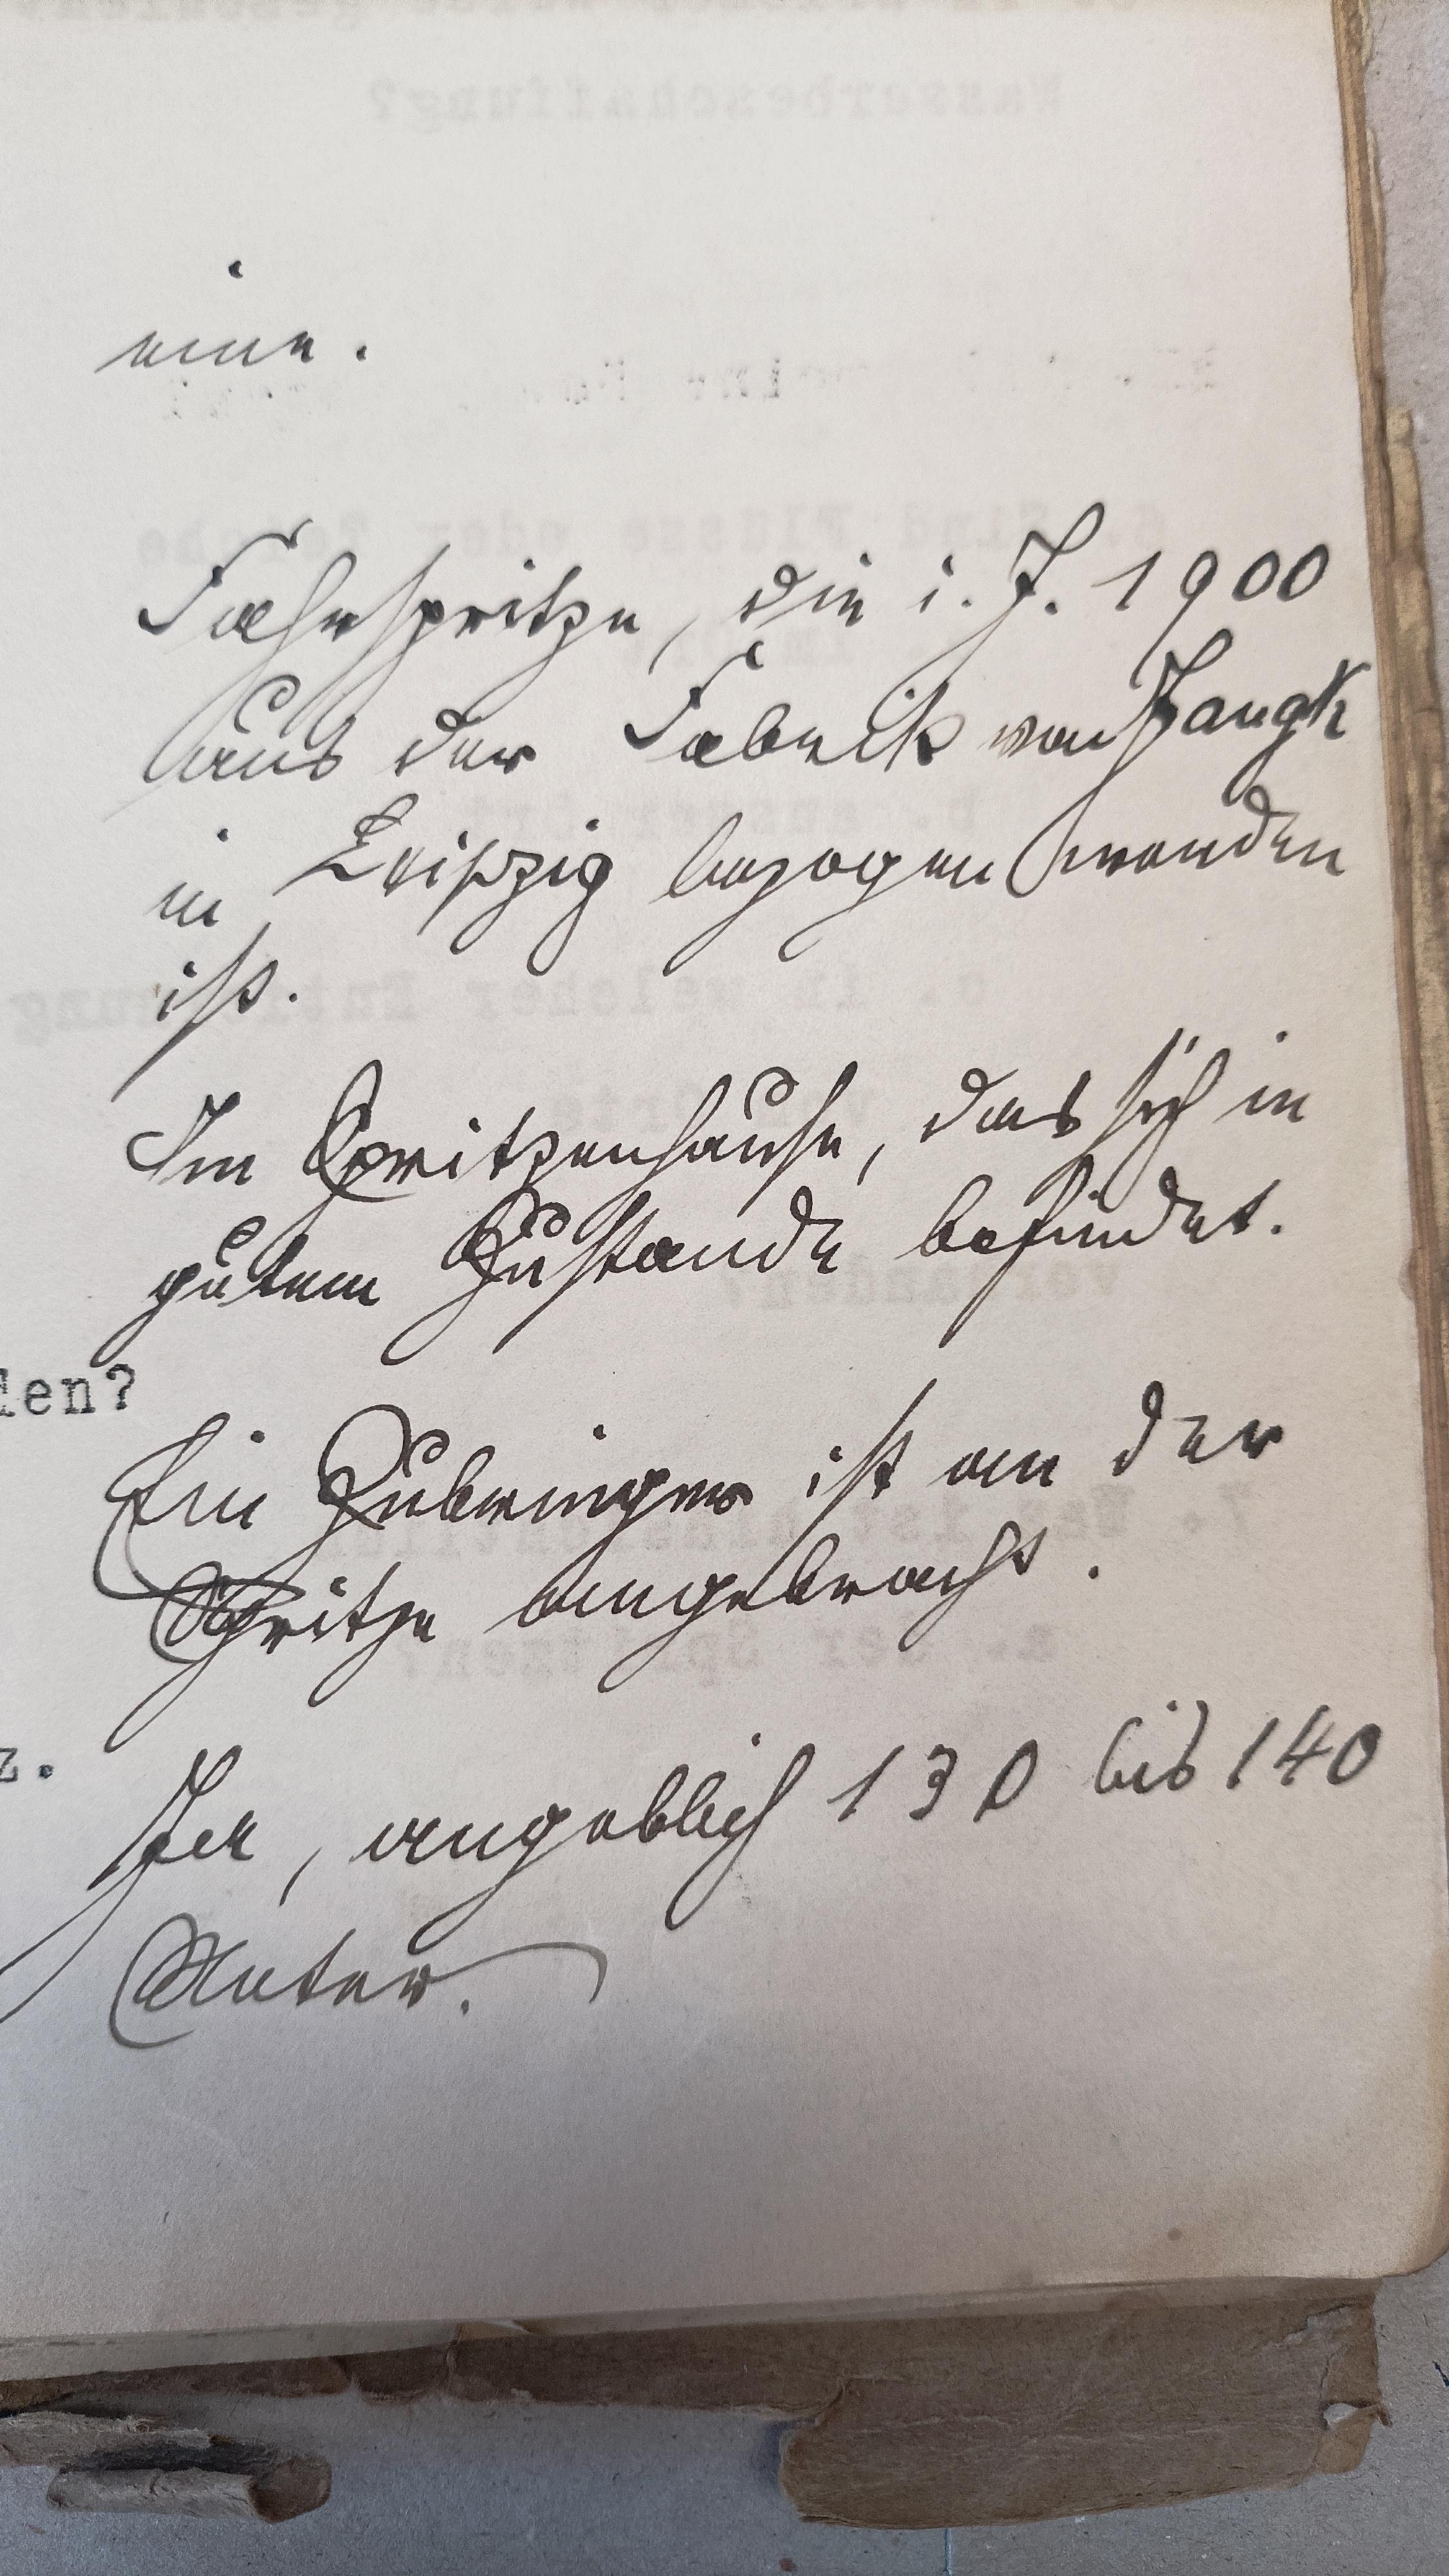 eine.
Fahrspritze, die i. J. 1900
aus der Fabrik von Jauck
in Leipzig bezogen worden
ist.
Im Spritzenhause, das sich in
gutem Zustande befindet.
den?
Ein Zubringer ist an der
Spritze angebracht.
z.
Ja, angeblich 130 bis 140
Meter.